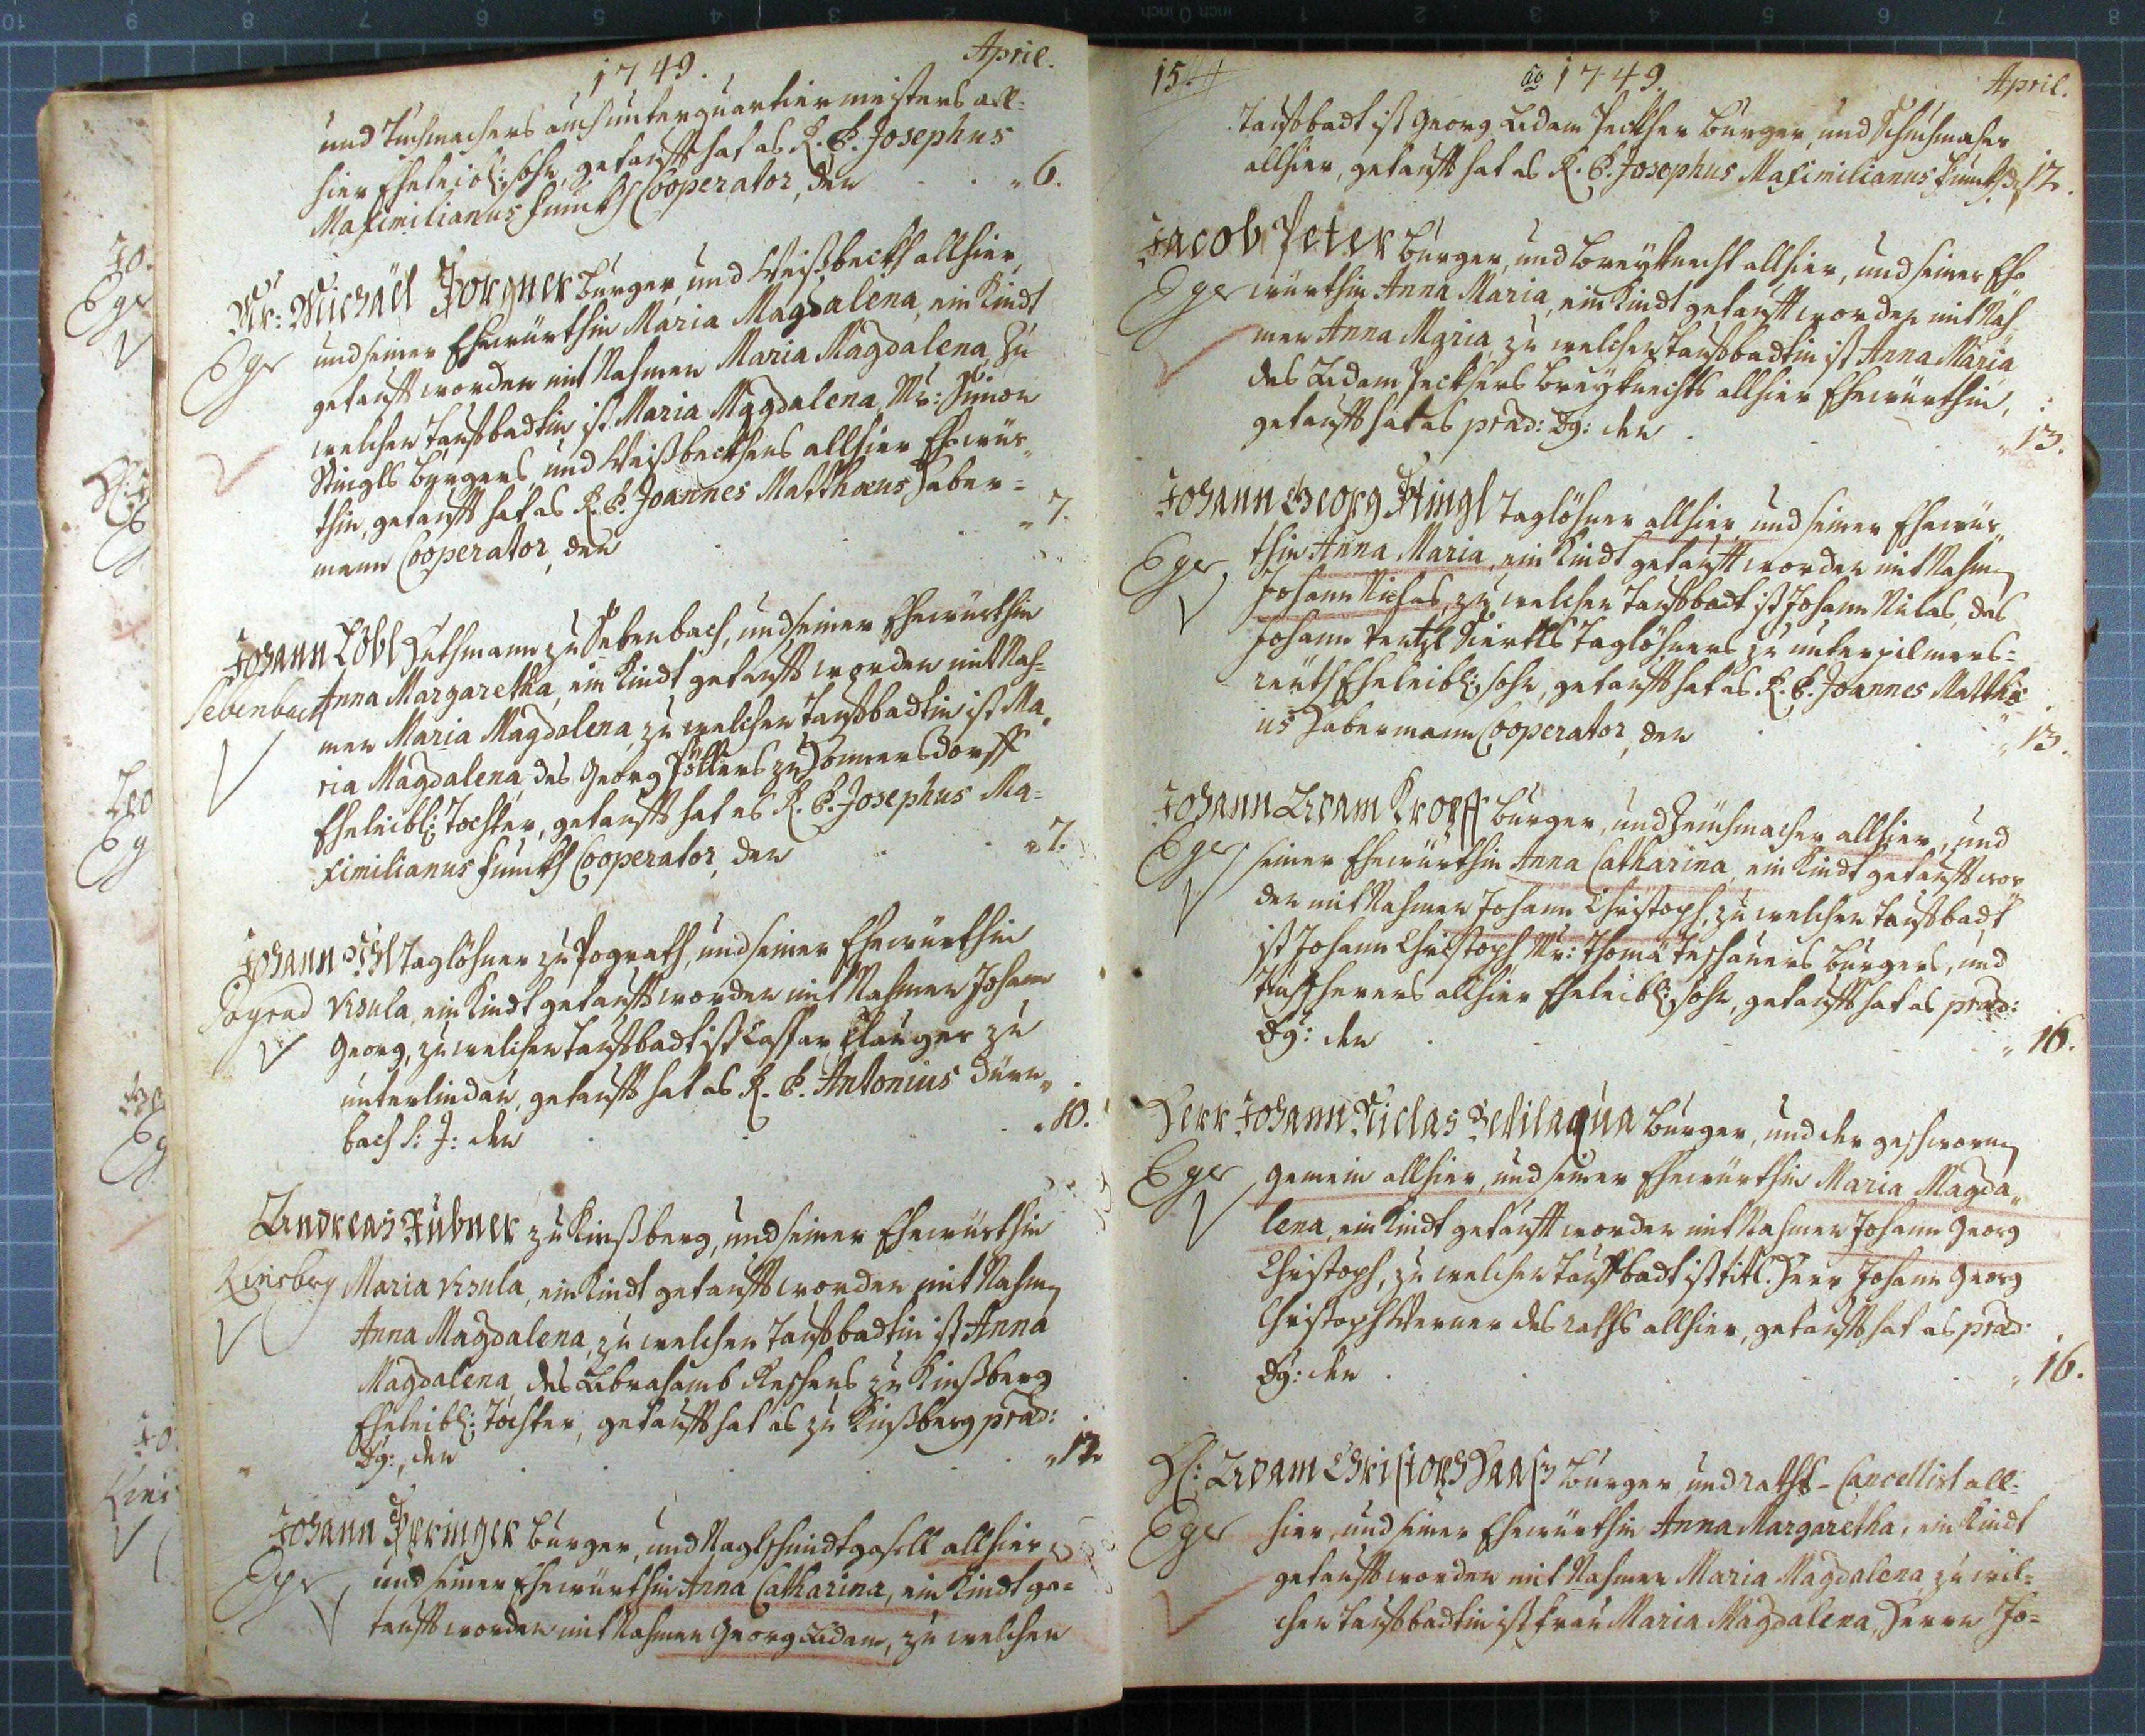 1749. April.
und Tuchmachers auch unterquartiermeisters all=
hier Eheleibl: sohn, getaufft hat es R. P. Josephus
Maximilianus funckh Cooperator, den „ 6.
Mr: Michäel Forgner burger, und Weißbeckh allhier,
Eger und seiner Ehewürthin Maria Magdalena, ein Kindt
getaufft worden mit Nahmen Maria Magdalena, zu
welcher Tauffbadtin ist Maria Magdalena, Mr: Simon
Stingls burgers, und Weißbeckhens allhier Ehewür„
thin, getaufft hat es R. P. Joannes Matthæus Haber=
mann Cooperator, den „ 7.
Johann Löbl Huthmann zu Sebenbach, und seiner Ehewürthin
Sebenbach Anna Margaretha, ein Kindt getaufft worden mit Nah=
men Maria Magdalena, zu welcher Tauffbadtin ist Ma„
ria Magdalena, des Georg zu Sommersdorff
Eheleibl: Tochter, getaufft hat es R. P. Josephus Ma=
ximilianus funckh Cooperator, den „ 7.
Johann Taglöhner zu Pograth, und seiner Ehewürthin
Pograd Ursula, ein Kindt getaufft worden mit Nahmen Johann
Georg, zu welcher Tauffbadt ist Caspar Clauger zu
unterlindau, getaufft hat es R. P. Antonius Dürn„
bach S: J: den „ 10.
Andreas Hübner zu Kinßberg, und seiner Ehewürthin
Kinsberg Maria Ursula, ein Kindt getaufft worden mit Nahmen
Anna Magdalena, zu welcher Tauffbadtin ist Anna
Magdalena, des Abrahamb zu Kinßberg
Eheleibl: Tochter, getaufft hat es zu Kinßberg præd:
Dg:, den „ 12.
Johann Springer burger, und Naglschmidtgesell allhier
Eger und seiner Ehewürthin Anna Catharina, ein Kindt ge=
taufft worden mit Nahmen Georg Adam, zu welcher
15. ao 1749. April.
Tauffbadt ist Georg Adam Peckher burger, und Schuhmacher
allhier, getaufft hat es R. P. Josephus Maximilianus funckh, den 12.
Jacob Peter burger, und breyknecht allhier, und seiner Ehe„
Eger würthin Anna Maria, ein Kindt getaufft worden mit Nah=
men Anna Maria, zu welcher Tauffbadtin ist Anna Maria
des Adam Peckhers breyknechts allhier Ehewürthin,
getaufft hat es præd: Dg: den „ 13.
Johann Georg Stingl Taglöhner allhier, und seiner Ehewür„
Eger thin Anna Maria, ein Kindt getaufft worden mit Nahmen
Johann Niclas, zu welcher Tauffbadt ist Johann Niclas, des
Johann Taglöhners zu unterpilmers=
reuth Eheleibl: sohn, getaufft hat es R. P. Joannes Matthæ
us Habermann Cooperator, den „ 13.
Johann Adam Kropff burger, und Zeuchmacher allhier, und
Eger seiner Ehewürthin Anna Catharina, ein Kindt getaufft wor
den mit Nahmen Johann Christoph, zu welcher Tauffbadt
ist Johann Christoph Mr: Thomä burgers, und
Tuchscherers allhier Eheleibl: sohn, getaufft hat es præd:
Dg: den „ 16.
Herr Johann Niclas Bevilaqua burger, und der geschwornen
Eger Gemein allhier, und seiner Ehewürthin Maria Magda„
lena, ein Kindt getaufft worden mit Nahmen Johann Georg
Christoph, zu welcher Tauffbadt ist titl. Herr Johann Georg
Christoph Werner des raths allhier, getaufft hat es præd.
Dg: den „ 16.
H: Adam Christoph Haaß burger, und raths-Cancellist all=
Eger hier, und seiner Ehewürthin Anna Margaretha, ein Kindt
getaufft worden mit Nahmen Maria Magdalena, zu wel=
cher Tauffbadtin ist frau Maria Magdalena, Herrn Jo=